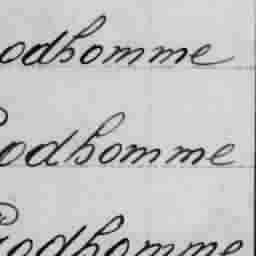 odhomme
odhomme
Godhomme